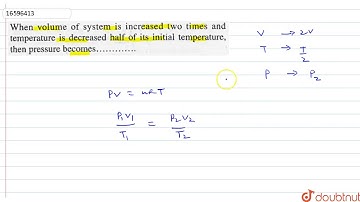 16596413
When volume of system is increased two times and
temperature is decreased half of its initial temperature,
then pressure becomes.............
V → 2V
T → T/2
P → P2
PV = nRT
P1V1/T1 = P2V2/T2
doubtnut